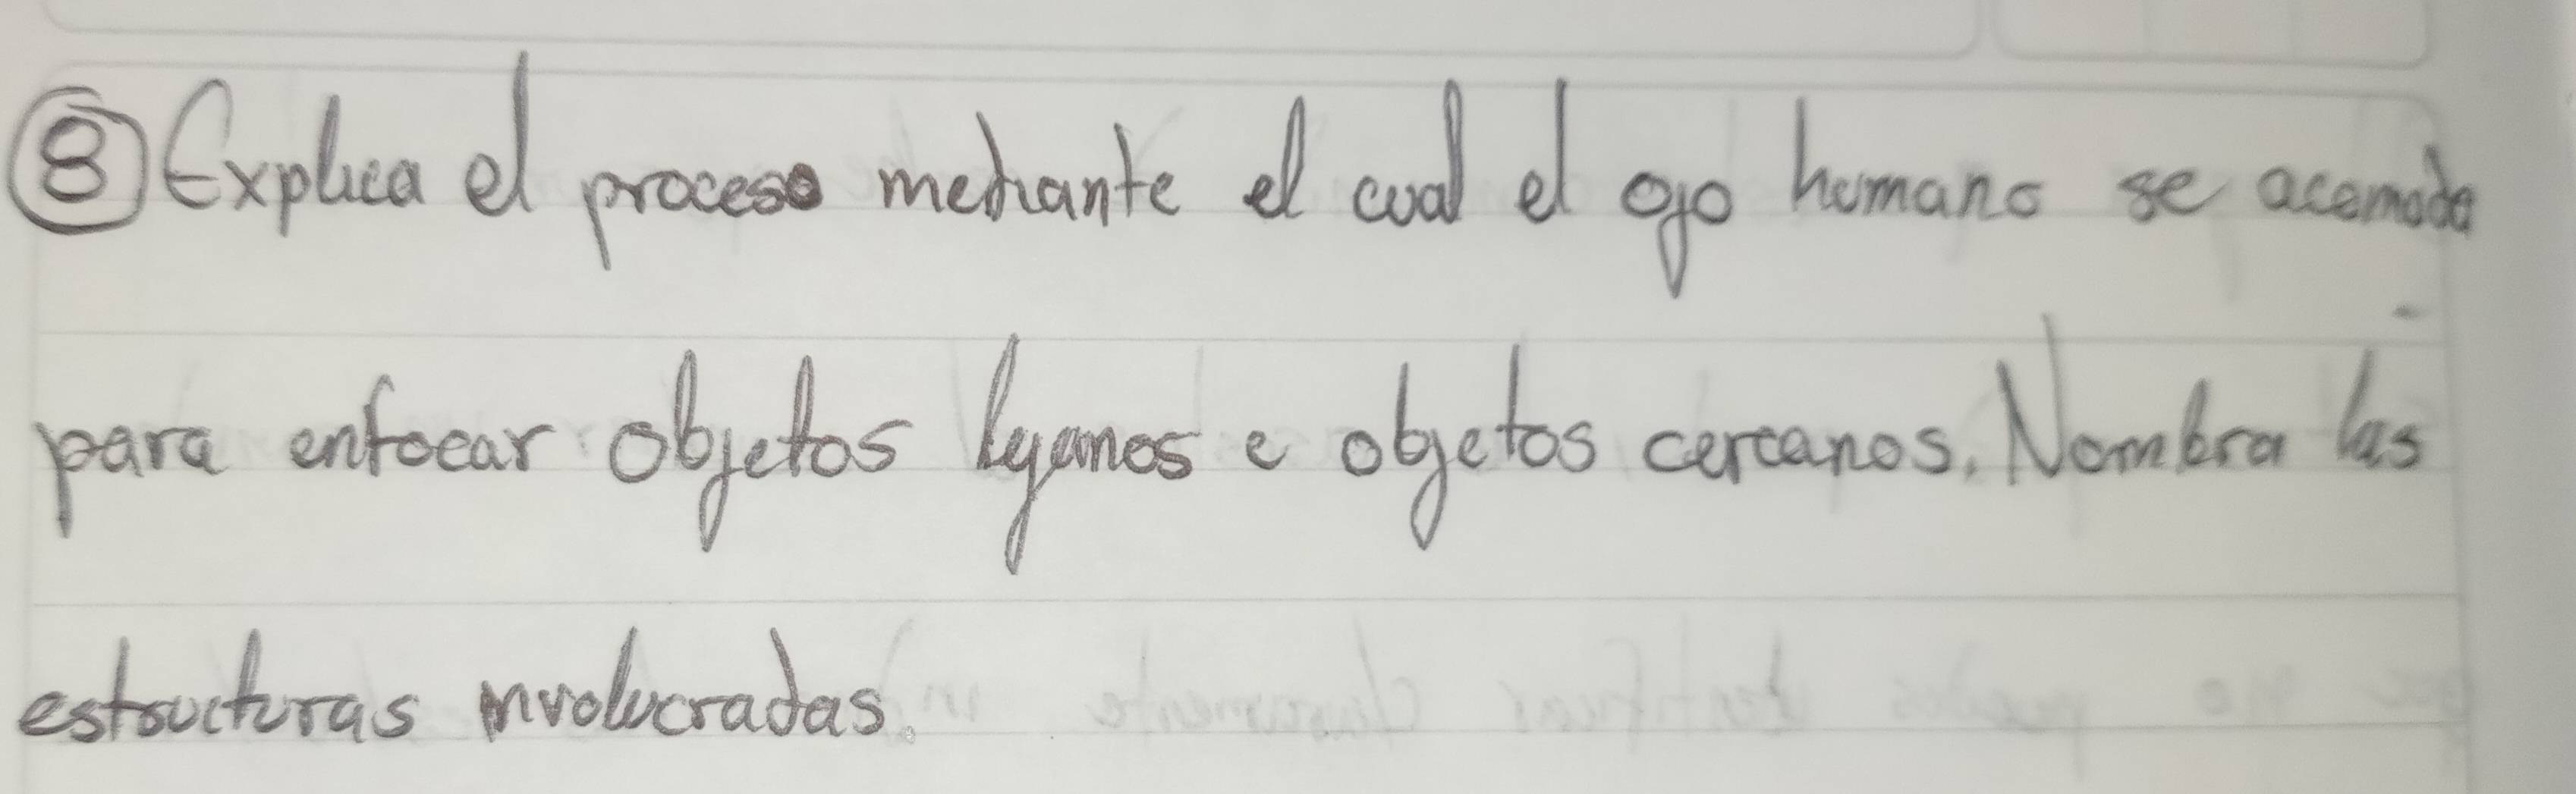 ⑧ Explica el proceso mediante el cual el ojo humano se acomoda
para enfocar objetos lejanos e objetos cercanos. Nombra las
estructuras involucradas.